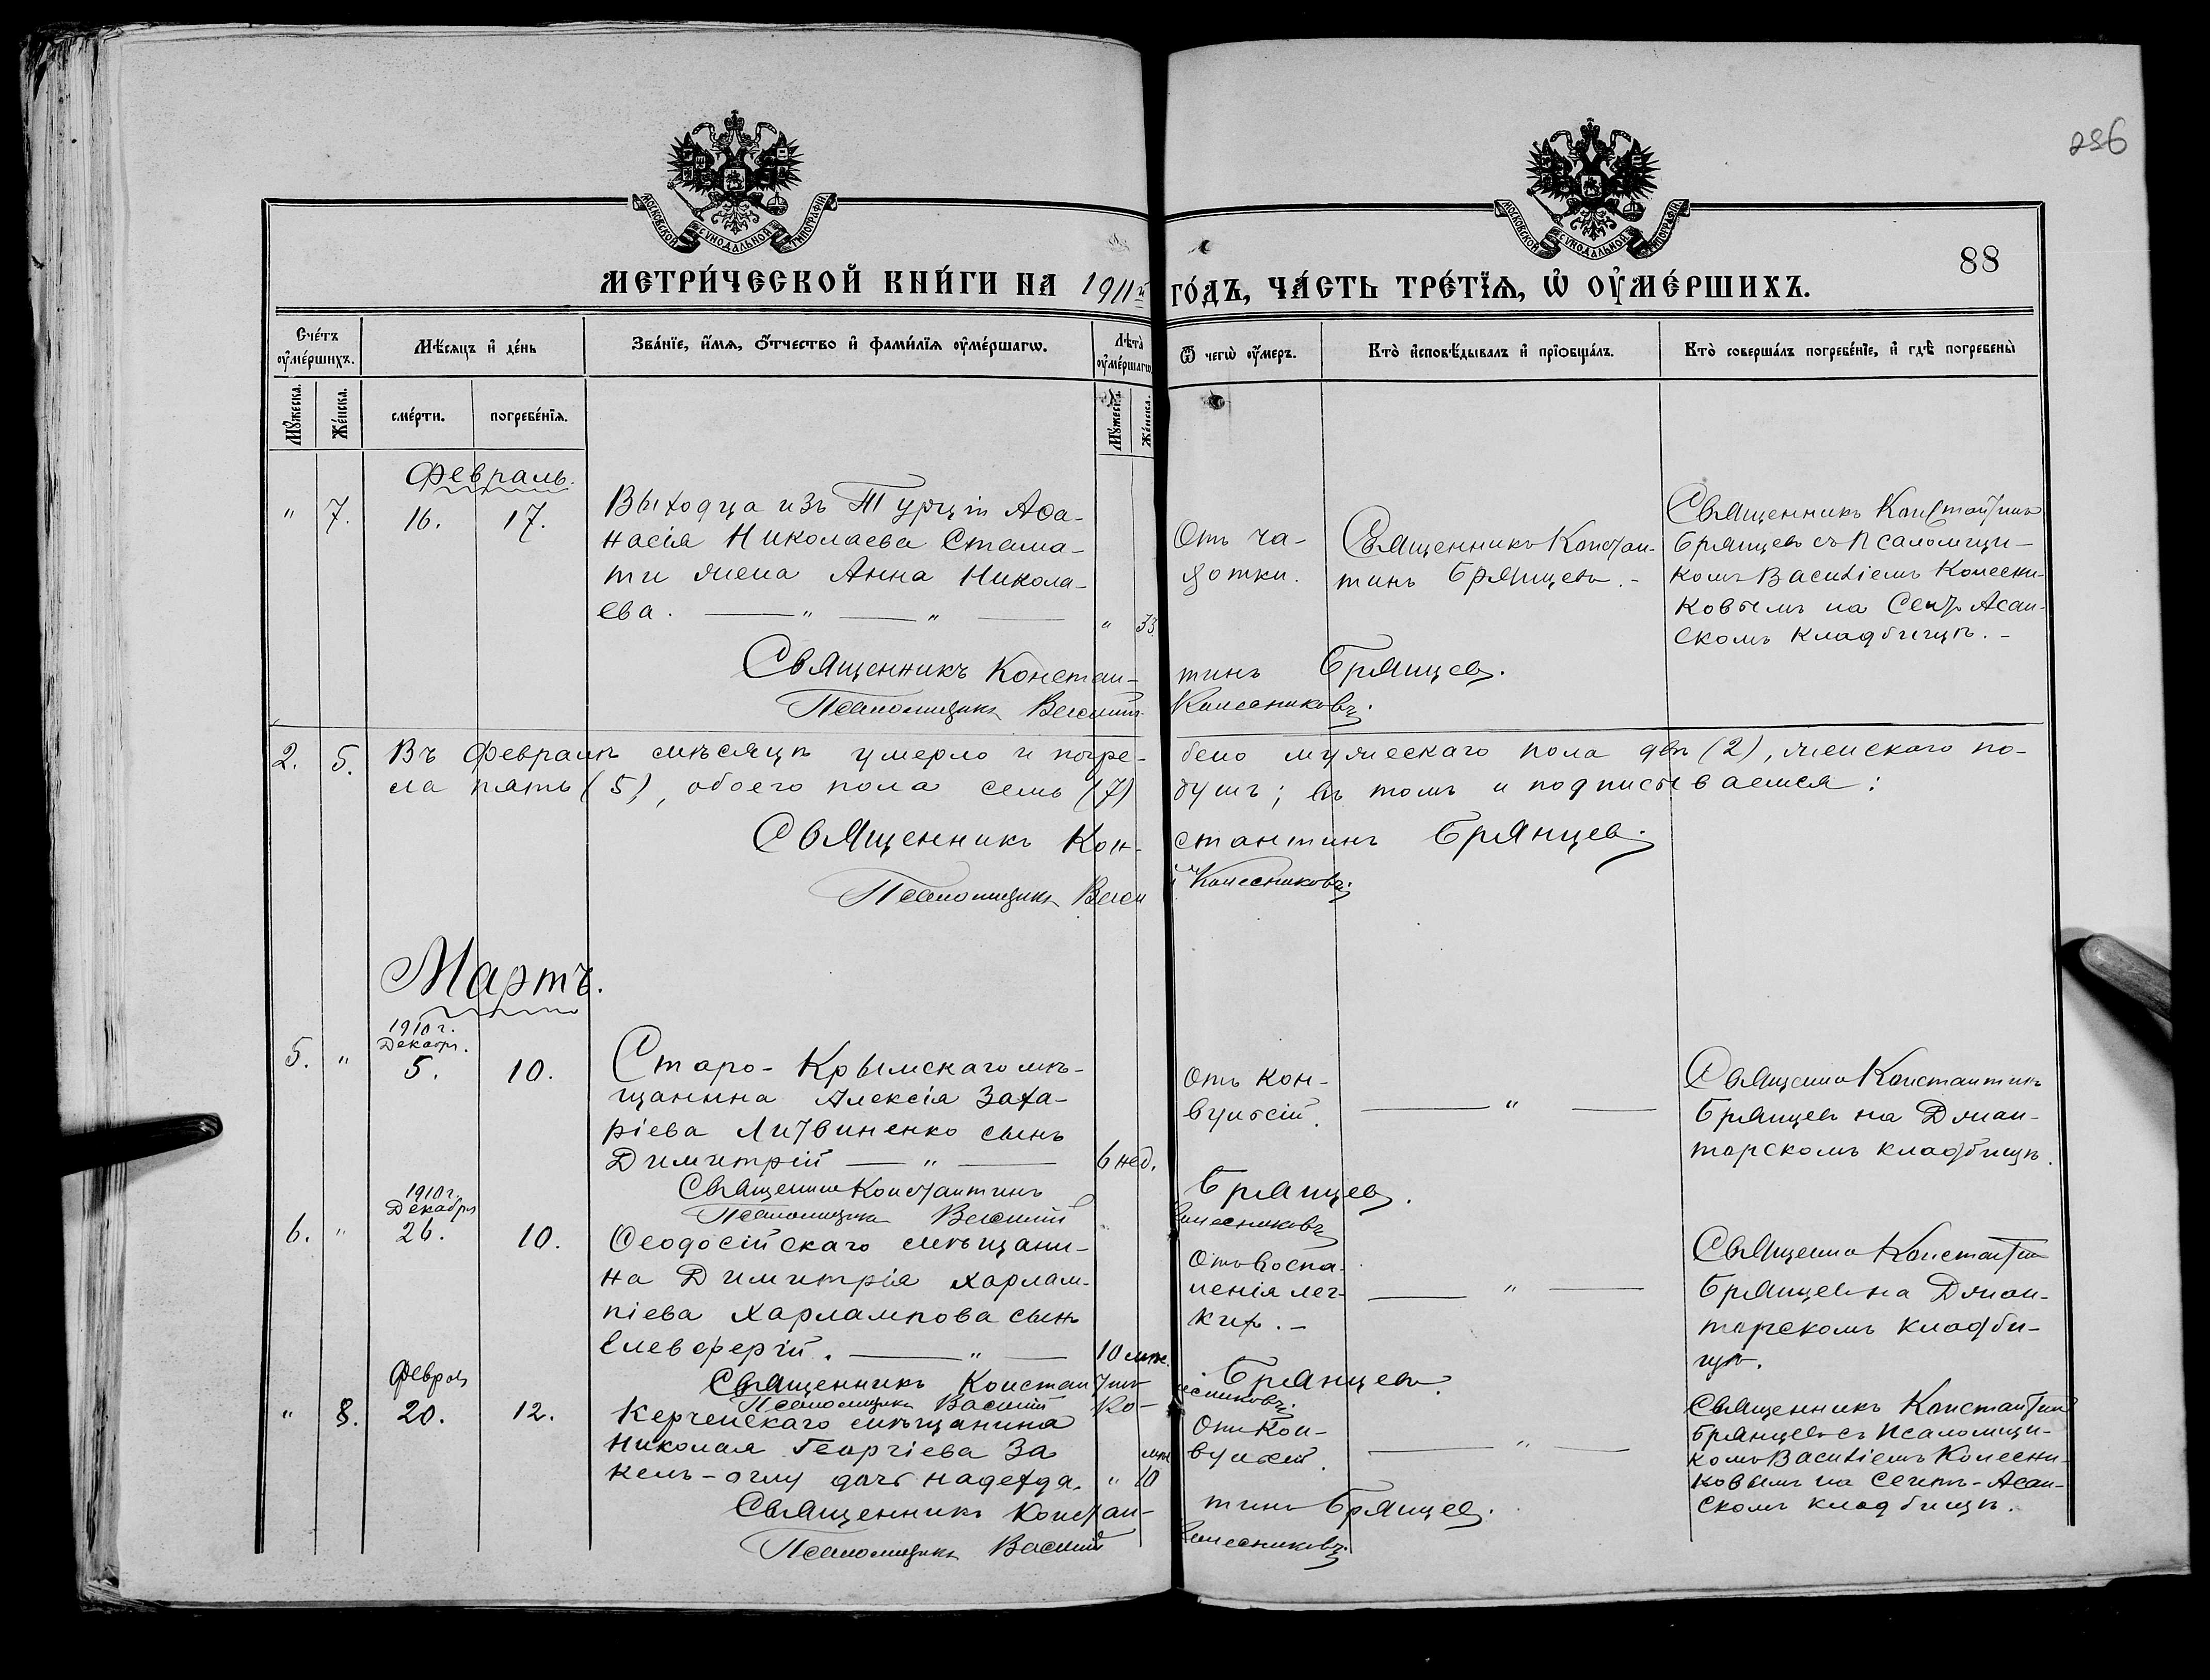 286
МОСКОВСКОЙ СУНОДАЛЬНОЙ ТИПОГРАФІИ
МОСКОВСКОЙ СУНОДАЛЬНОЙ ТИПОГРАФІИ
88
МЕТРИ́ЧЕСКОЙ КНИ́ГИ НА 1911й ГО́ДЪ, ЧА́СТЬ ТРЕ́ТЇѦ, Ѡ҆ ОУ҆МЕ́РШИХЪ.
Сче́тъ оу҆ме́ршихъ.
Мѣ́сяцъ и҆ де́нь
Зва́нїе, и҆́мѧ, ѻ҆́тчество и҆ фами́лїѧ оу҆ме́ршагѡ.
Лѣ́та оу҆ме́ршагѡ
Ѿ чегѡ̀ оу҆́меръ.
Кто̀ и҆сповѣ́дывалъ и҆ прїѻбща́лъ.
Кто̀ соверша́лъ погребе́нїе, и҆ гдѣ̀ погребены̀
Мꙋ́жеска. Же́нска. сме́рти. погребе́нїѧ. Мꙋ́жеска. Же́нска.
Февраль.
" 7. 16. 17.
Выходца изъ Турціи Аѳа-
насія Николаева Стама-
ти жена Анна Никола-
ева. — " — " — " 33.
Отъ ча-
хотки.
Священникъ Констан-
тинъ Брянцевъ. -
Священникъ Константинъ
Брянцевъ съ Псаломщи-
комъ Василіемъ Колесни-
ковымъ на Сеитъ Асан-
скомъ кладбищѣ. -
Священникъ Констан- тинъ Брянцев.
Псаломщикъ Василій Колесниковъ.
2. 5. Въ Февралѣ мѣсяцѣ умерло и погре- бено мужескаго пола два (2), женскаго по-
ла пять (5), обоего пола семь (7) душъ; въ томъ и подписываемся:
Священникъ Кон- стантинъ Брянцев.
Псаломщикъ Васи й Колесниковъ.
Мартъ.
1910 г.
Декабр.
5. " 5. 10.
Старо-Крымскаго мѣ-
щанина Алексія Заха-
ріева Литвиненко сынъ
Димитрій — " — 6 нед.
Отъ кон-
вульсій.
— " —
Священно Константинъ
Брянцевъ на Джан-
торскомъ кладбищѣ.
Священно Константинъ Брянцев.
Псаломщикъ Василій Колесниковъ
1910 г.
Декабря
6. " 26. 10.
Ѳеодосійскаго мѣщани-
на Димитрія Харлам-
піева Харлампова сынъ
Елевферій. — " — 10 мѣс.
Отъ воспа-
ленія лег-
кихъ. -
— " —
Священно Константин
Брянцевъ на Джан-
торскомъ кладби-
щѣ.
Священникъ Константинъ Брянцевъ.
Псаломщикъ Василій Ко- лесниковъ.
Февраль
" 8. 20. 12.
Керченскаго мѣщанина
Николая Георгіева За
кель-оглу дочь Надежда. " 10 мѣс
Отъ кон-
вульсій.
— " —
Священникъ Константин
Брянцевъ съ Псаломщи-
комъ Василіемъ Колесни-
ковымъ на Сеитъ-Асан-
скомъ кладбищѣ.
Священникъ Констан- тинъ Брянцев.
Псаломщикъ Василій Колесниковъ.